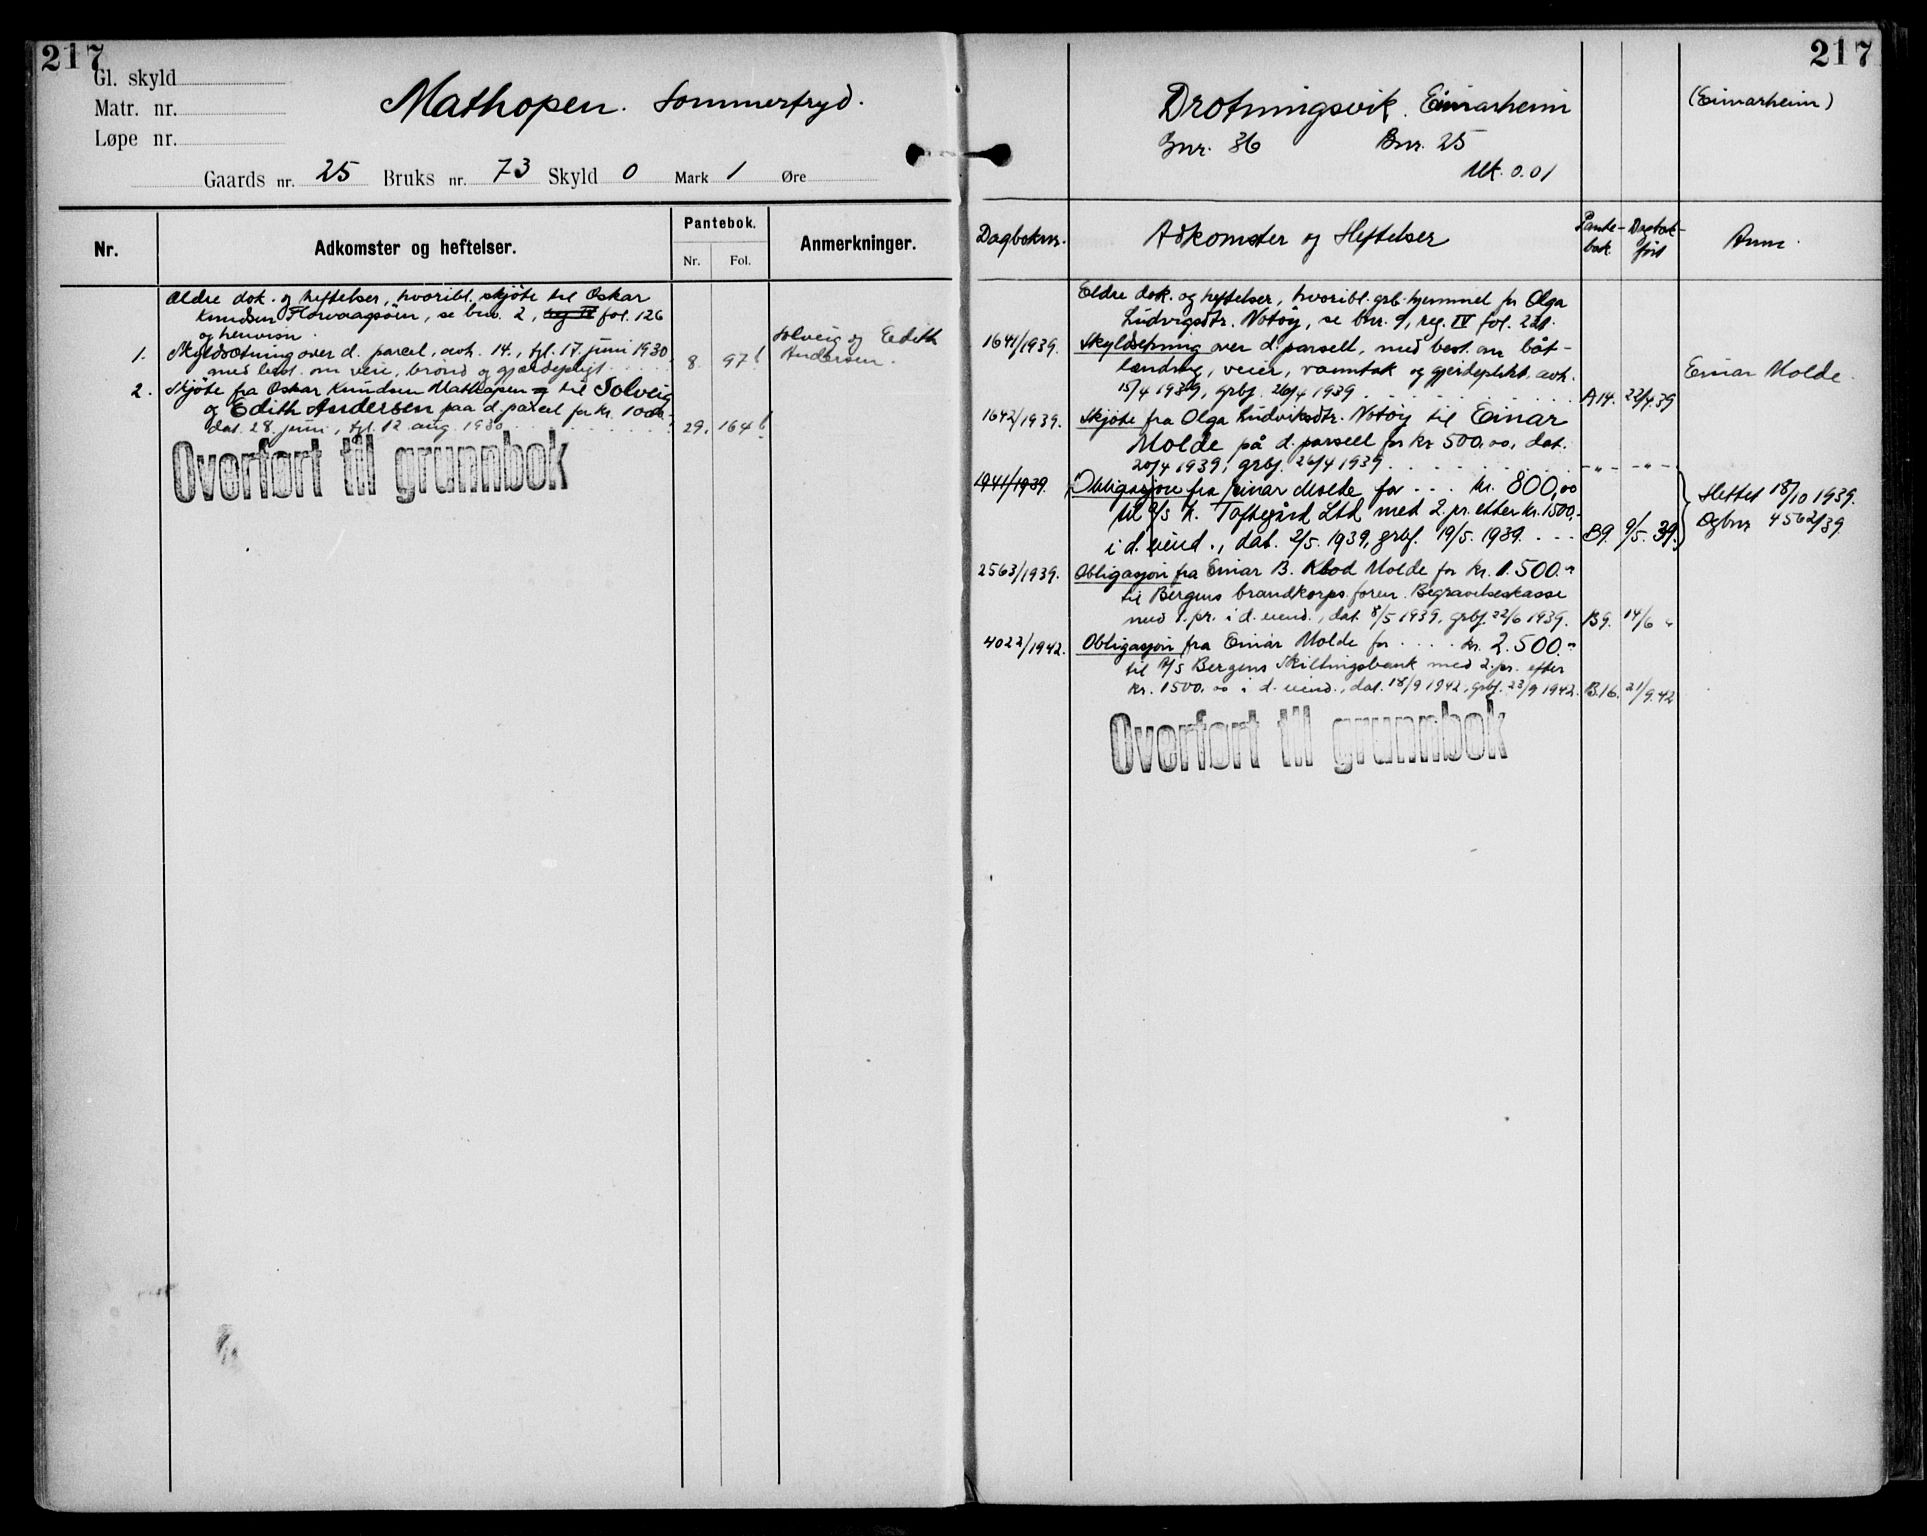 217
Gl. skyld
Matr. nr.
Løpe nr.
Mathopen. Sommerfryd.
Gaards nr. 25 Bruks nr. 73 Skyld 0 Mark 1 Øre
Nr.
Adkomster og heftelser.
Pantebok.
Nr. Fol.
Anmerkninger.
Ældre dok. og heftelser, hvoribl. skjöte til Oskar
Knudsen Florvaagsöen, se bnr. 2, reg IV fol. 126
og henvisn.
1. Skyldsætning over d. parcel, avh. 14., tgl. 17. juni 1930
med best. om veie, brönd og gjærdepligt 8. 97b
2. Skjöte fra Oskar Knudsen Mathopen til Solveig
og Edith Andersen paa d. parcel for kr. 1000.-
dat. 28. juni, tgl. 12. aug. 1930 29. 164b
Solveig og Edith
Andersen.
Overført til grunnbok
217
Drotningsvik. Einarheim
Gnr. 36 Bnr. 25
Mk. 0.01
(Einarheim)
Dagboknr. Adkomster og Heftelser
Pante-
bok
Dagbok-
ført
Anm.
Eldre dok. og heftelser, hvoribl. grb. hjemmel for Olga
Ludvigsdtr. Notöy, se bnr. 9, reg. IV fol. 221.
1641/1939. Skyldsetning over d. parsell, med best. om båt-
landing, veier, vanntak og gjerdeplikt, avh.
15/4 1939, grbf. 26/4 1939 A14. 22/4.39
Einar Molde.
1642/1939. Skjöte fra Olga Ludviksdtr. Notöy til Einar
Molde på d. parsell for kr 500,00, dat.
20/4 1939, grbf. 26/4 1939 -"- -"-
1941/1939. Obligasjon fra Einar Molde for ... kr. 800,00
til A/S K. Toftegård Ltd med 2. pr. etter kr. 1500,-
i d. eiend., dat. 2/5. 1939, grbf. 19/5. 1939. B9. 9/5. 39.
Slettet 18/10 1939.
Dgbnr 4562/39.
2563/1939. Obligasjon fra Einar B. Molde for kr. 1.500.-
til Bergens brandkorps foren. Begravelseskasse
med 1. pr. i d. eiend., dat. 8/5 1939, grbf. 22/6 1939. B9. 14/6 "
4022/1942. Obligasjon fra Einar Molde for .... kr. 2.500.-
til A/S Bergens Skillingsbank med 2. pr. efter
kr. 1500,00 i d. eiend., dat. 18/9 1942, grbf. 23/9 1942. B.16. 21/9.42
Overført til grunnbok